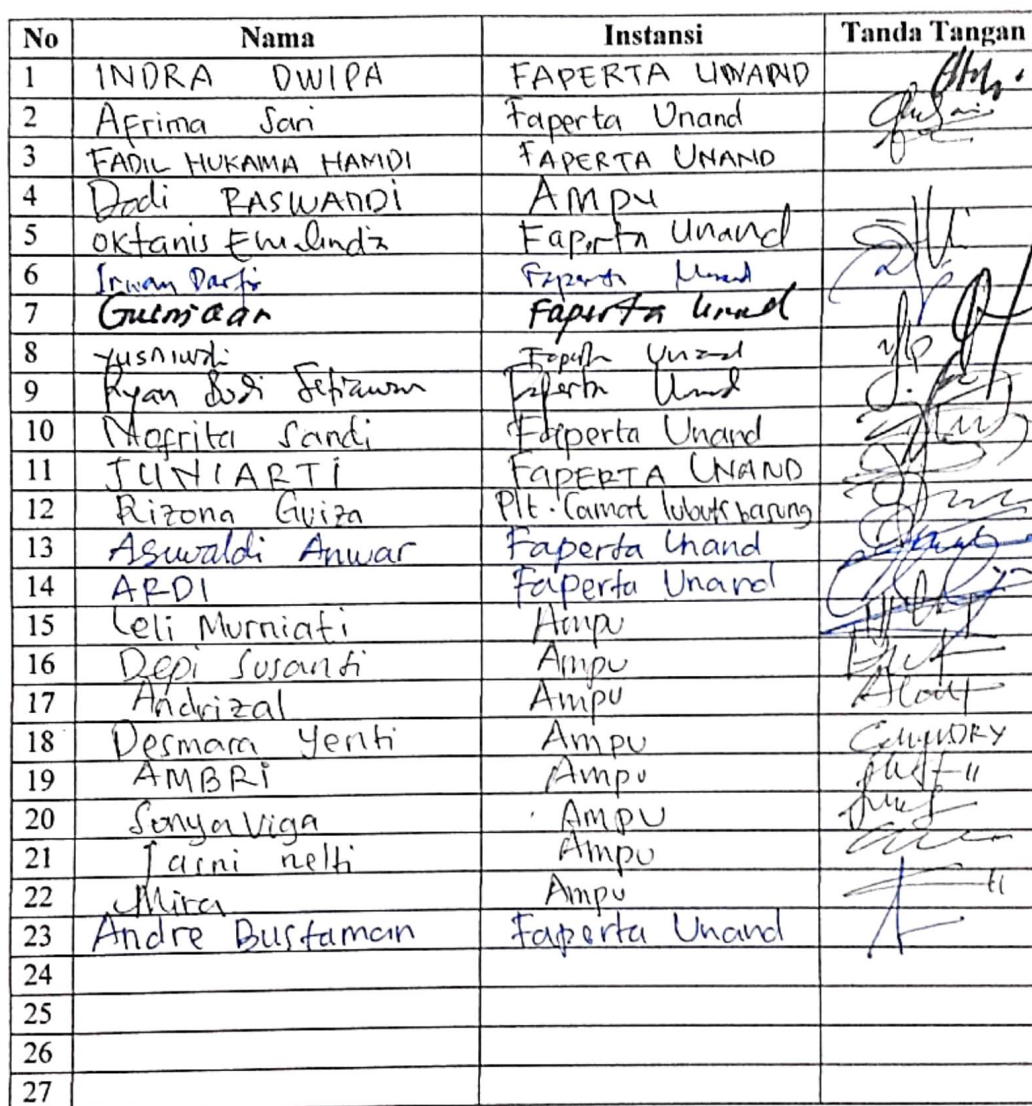 No Nama Instansi Tanda Tangan
1 INDRA DWIPA FAPERTA UNAND
2 Afrima Sari Faperta Unand
3 FADIL HUKAMA HAMDI FAPERTA UNAND
4 Dodi RASWANDI Ampu
5 Oktanis Emalinda Faperta Unand
6 Irwan Darfis Faperta Unand
7 Gusniwar Faperta Unand
8 Yusniwati Faperta Unand
9 Ryan Budi Setiawan Faperta Unand
10 Mafrita Sandi Faperta Unand
11 JUNIARTI FAPERTA UNAND
12 Rizona Guiza Plt. Camat lubuk basung
13 Aswaldi Anwar Faperta Unand
14 ARDI Faperta Unand
15 Leli Murniati Ampu
16 Depi Susanti Ampu
17 Andrizal Ampu
18 Desmara Yenti Ampu
19 AMBRi Ampu
20 Sonya Viga Ampu
21 Jasni nelti Ampu
22 Mira Ampu
23 Andre Bustaman Faperta Unand
24
25
26
27